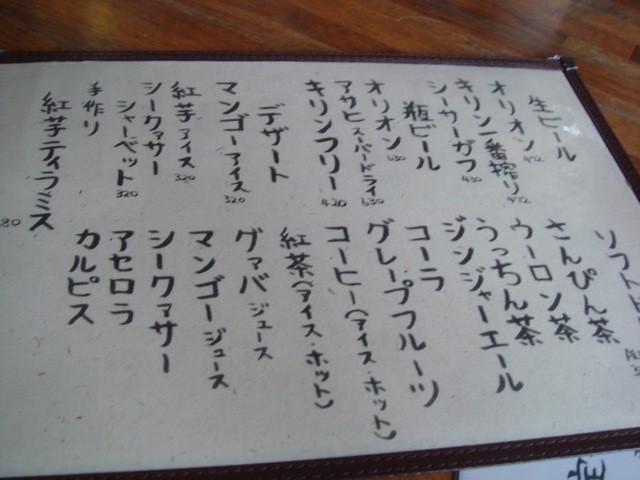 生ビール
オリオン 472
キリン一番搾り 472
シーサーガフ 430
瓶ビール
オリオン 630
アサヒスーパードライ 630
キリンフリー 420
デザート
マンゴーアイス 320
紅芋アイス 320
シークァサーシャーベット 320
手作り
紅芋ティラミス
80
ソフト
さんぴん茶
ウーロン茶
うっちん茶
ジンジャーエール
コーラ
グレープフルーツ
コーヒー(アイス・ホット)
紅茶(アイス・ホット)
グァバジュース
マンゴージュース
シークァサー
アセロラ
カルピス